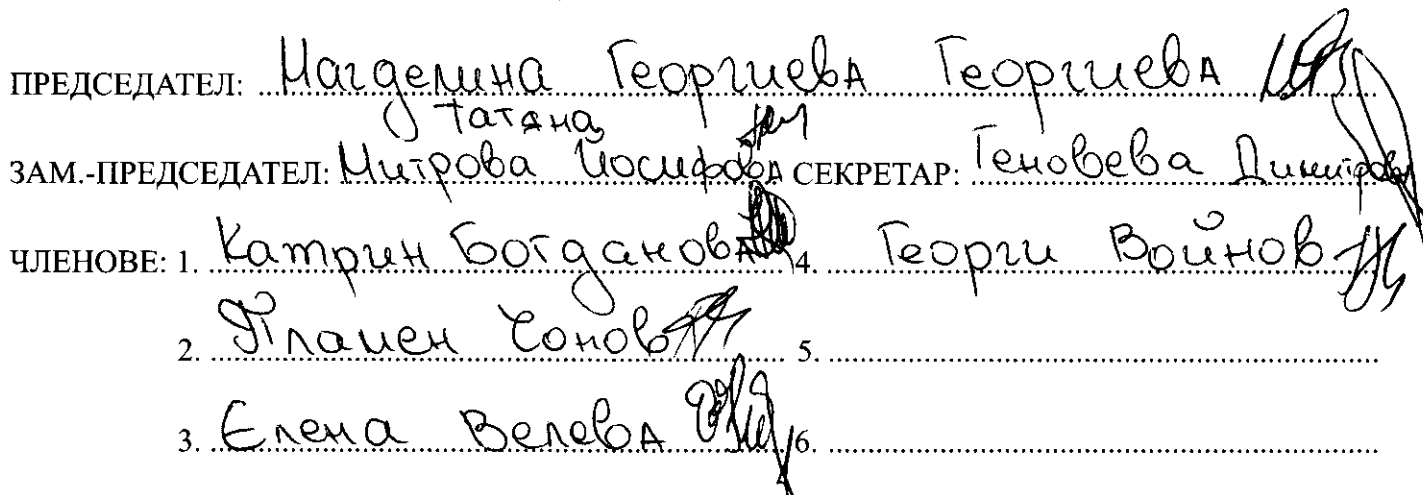 ПРЕДСЕДАТЕЛ: Магделина Георгиева Георгиева
Татяна
ЗАМ.-ПРЕДСЕДАТЕЛ: Митрова Йосифова СЕКРЕТАР: Геновева Димитрова
ЧЛЕНОВЕ: 1. Катрин Богданова 4. Георги Войнов
2. Пламен Чонов 5.
3. Елена Велева 6.